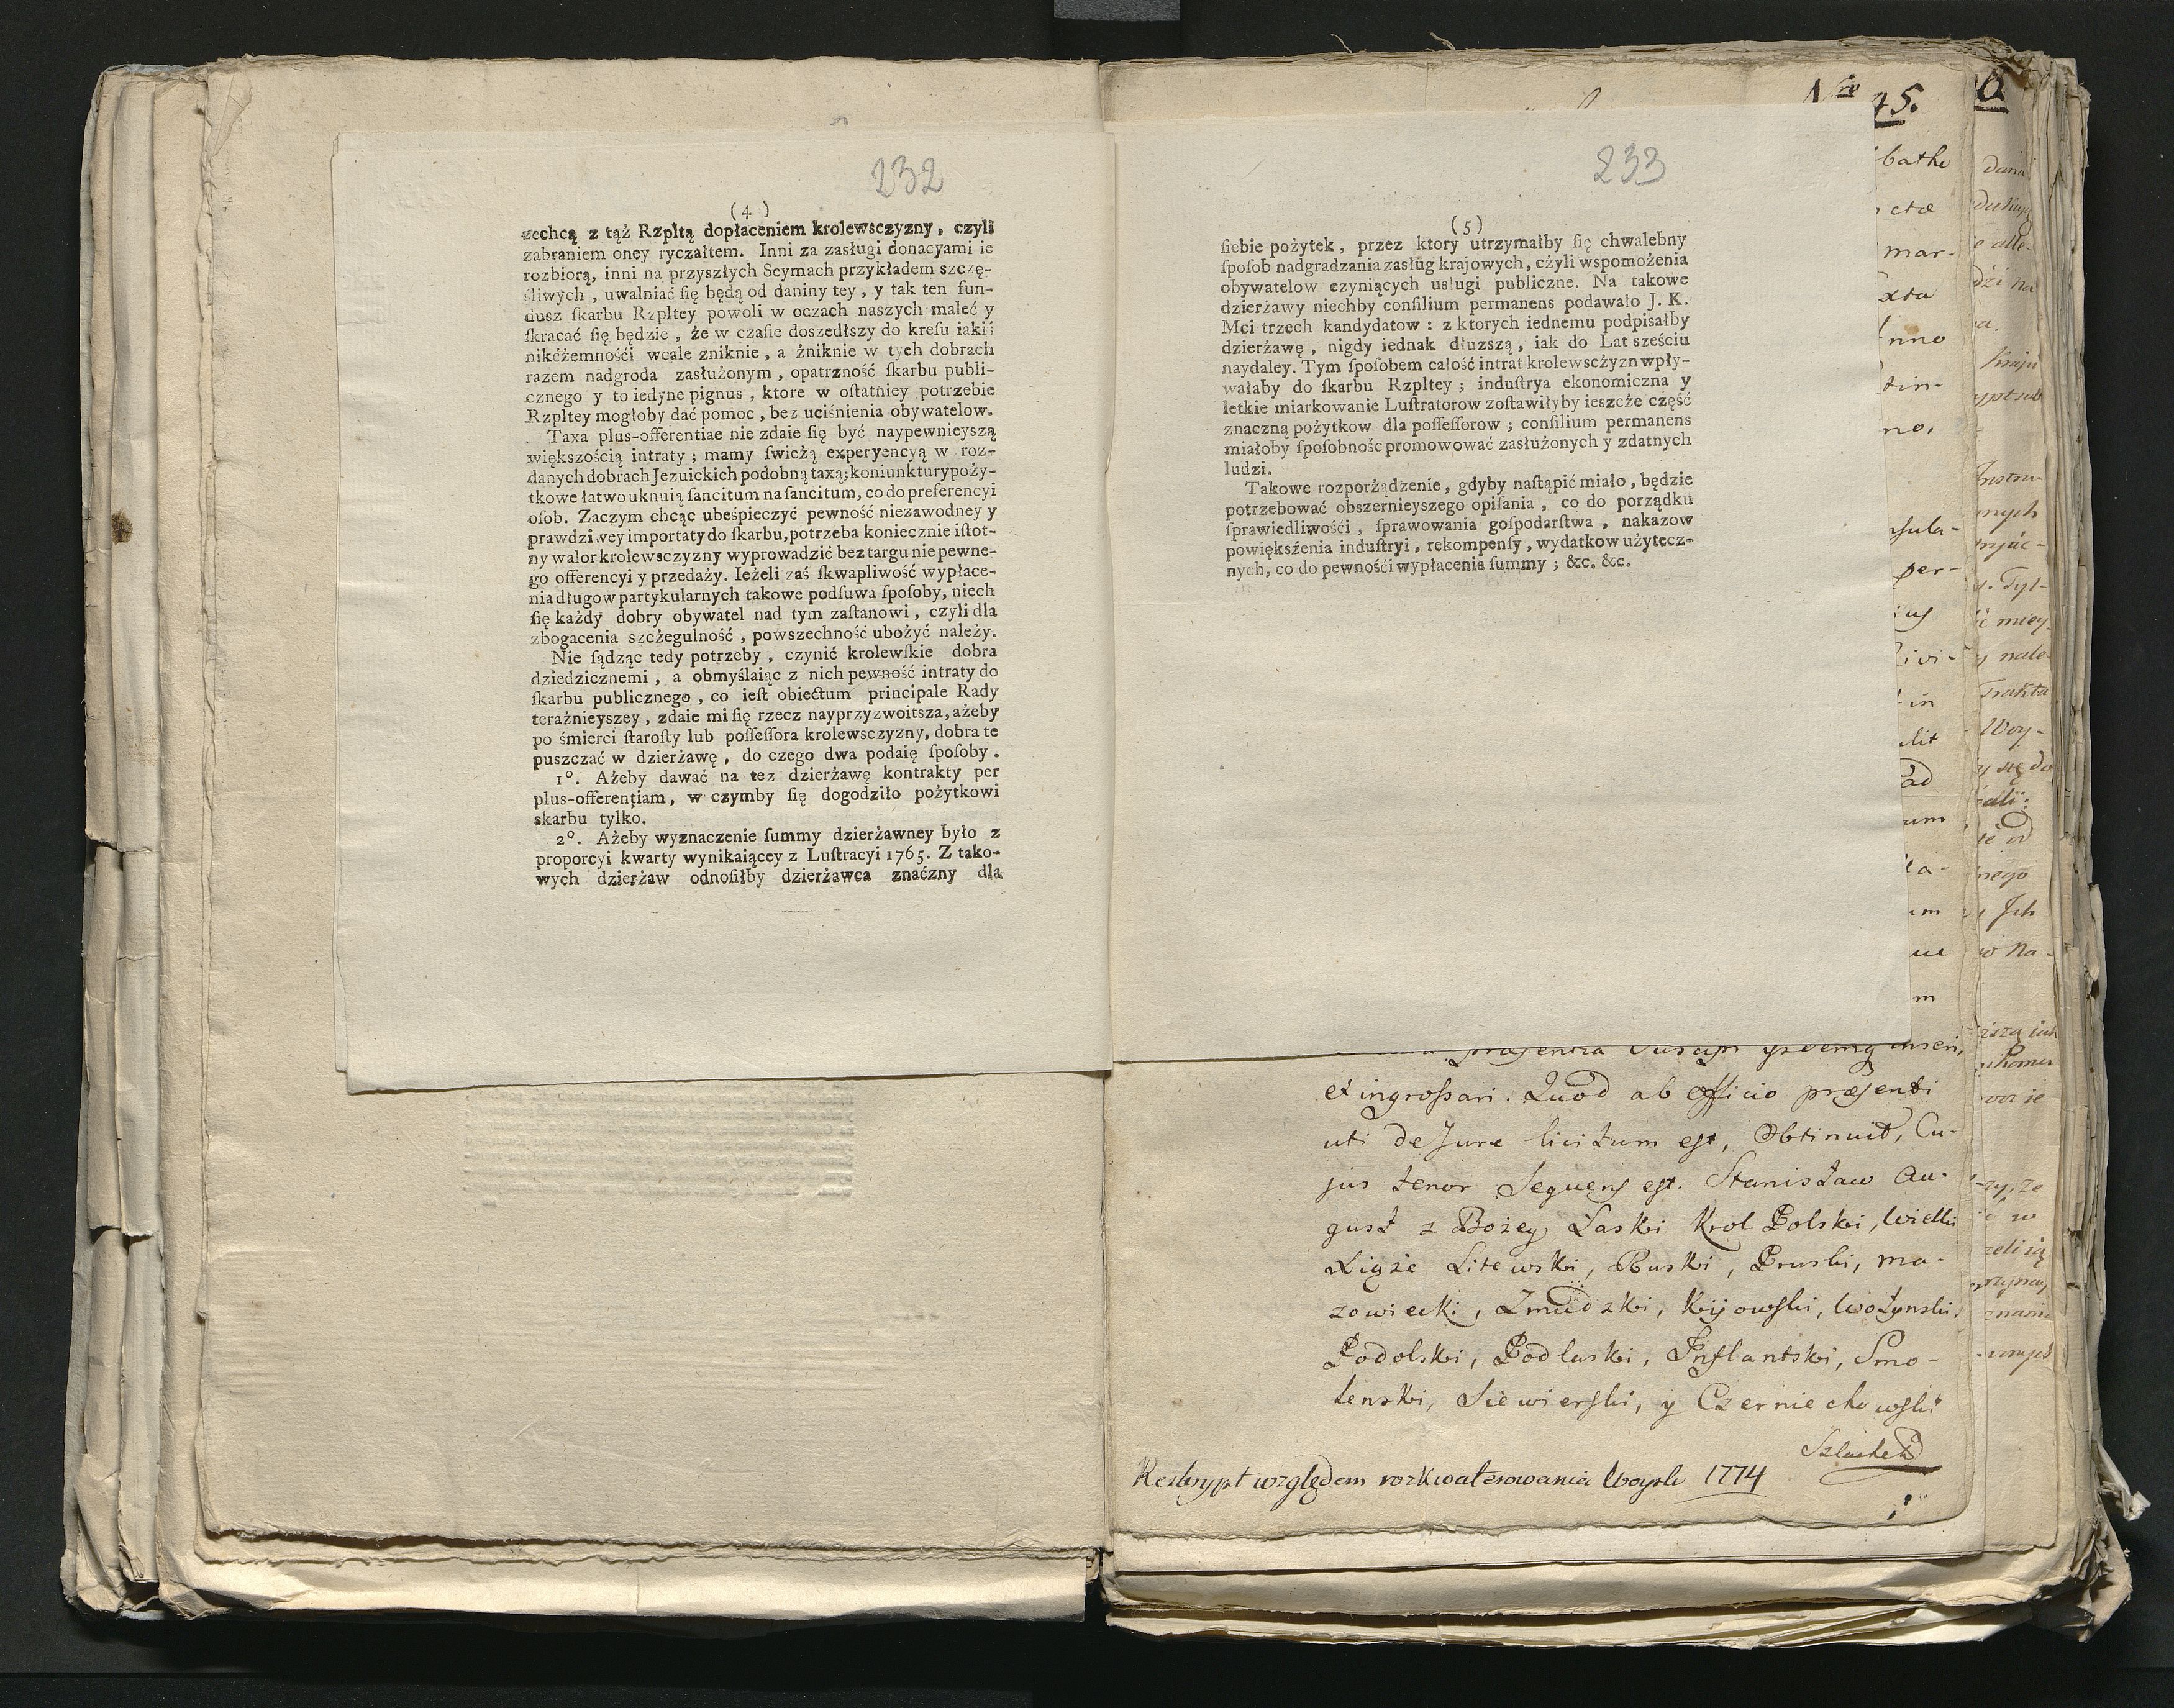 232
(4)
zechcą z tąż Rzpltą dopłaceniem krolewsczyzny, czyli
zabraniem oney ryczałtem. Inni za zasługi donacyami ie
rozbiorą, inni na przyszłych Seymach przykładem szczę-
śliwych, uwalniać ſię będą od daniny tey, y tak ten fun-
dusz ſkarbu Rzpltey powoli w oczach naszych maleć y
ſkracać ſię będzie, że w czaſie doszedłszy do kreſu iakiś
nikćżemnośći wcale zniknie, a żniknie w tych dobrach
razem nadgroda zasłużonym, opatrzność ſkarbu publi-
cznego y to iedyne pignus, ktore w oſtatniey potrzebie
Rzpltey mogłoby dać pomoc, bez uciśnienia obywatelow.
Taxa plus-offerentiae nie zdaie ſię być naypewnieyszą
większością intraty; mamy ſwieżą experyencyą w roz-
danych dobrach Jezuickich podobną taxą; koniunktury poży-
tkowe łatwo uknuią ſancitum na ſancitum, co do preferencyi
oſob. Zaczym chcąc ubeśpieczyć pewność niezawodney y
prawdziwey importaty do ſkarbu, potrzeba koniecznie iſtot-
ny walor krolewsczyzny wyprowadzić bez targu nie pewne-
go offerencyi y przedaży. Ieżeli zaś ſkwapliwość wypłace-
nia długow partykularnych takowe podſuwa ſpoſoby, niech
ſię każdy dobry obywatel nad tym zaſtanowi, czyli dla
zbogacenia szcżegulność, powszechność ubożyć należy.
Nie ſądząc tedy potrzeby, czynić krolewſkie dobra
dziedzicznemi, a obmyślaiąc z nich pewność intraty do
ſkarbu publicznego, co ieſt obiectum principale Rady
teraźnieyszey, zdaie mi ſię rzecz nayprzyzwoitsza, ażeby
po śmierci ſtaroſty lub poſſeſſora krolewsczyzny, dobra te
puszczać w dzierżawę, do czego dwa podaię ſpoſoby.
1°. Ażeby dawać na tez dzierżawę kontrakty per
plus-offerentiam, w czymby ſię dogodziło pożytkowi
skarbu tylko.
2°. Ażeby wyznaczenie ſummy dzierżawney było z
proporcyi kwarty wynikaiącey z Luſtracyi 1765. Z tako-
wych dzierżaw odnoſiłby dzierżawca znaćzny dla
233
(5)
ſiebie pożytek, przez ktory utrzymałby ſię chwalebny
ſpoſob nadgradzania zasług krajowych, cżyli wspomożenia
obywatelow czyniących usługi publiczne. Na takowe
dzierżawy niechby conſilium permanens podawało J. K.
Mci trzech kandydatow: z ktorych iednemu podpisałby
dzierżawę, nigdy iednak dłuzszą, iak do Lat sześciu
naydaley. Tym ſpoſobem całość intrat krolewscżyzn wpły-
wałaby do ſkarbu Rzpltey; induſtrya ekonomiczna y
letkie miarkowanie Luſtratorow zoſtawiłyby ieszcże część
znaczną pożytkow dla poſſeſſorow; conſilium permanens
miałoby ſpoſobnośc promowować zasłużonych y zdatnych
ludzi.
Takowe rozporżądzenie, gdyby naſtąpić miało, będzie
potrzebować obszernieyszego opiſania, co do porządku
ſprawiedliwośći, ſprawowania goſpodarſtwa, nakazow
powiększenia induſtryi, rekompenſy, wydatkow użytecz-
nych, co do pewnośći wypłacenia ſummy; &c. &c.
45.
et ingrossari. Quod ab officio præsenti
uti de Jure licitum est, Obtinuit, Cu-
jus tenor Sequens est. Stanisław Au-
gust z Bożey Łaski Krol Polski, Wielki
Xiąże Litewski, Ruski, Pruski, ma-
zowiecki, Zmudzki, Kijowski, Wołynski,
Podolski, Podlaski, Inflantski, Smo-
lenski, Siewierski, y Czerniechowski
Reskrypt względem rozkwaterowania Woysk 1774